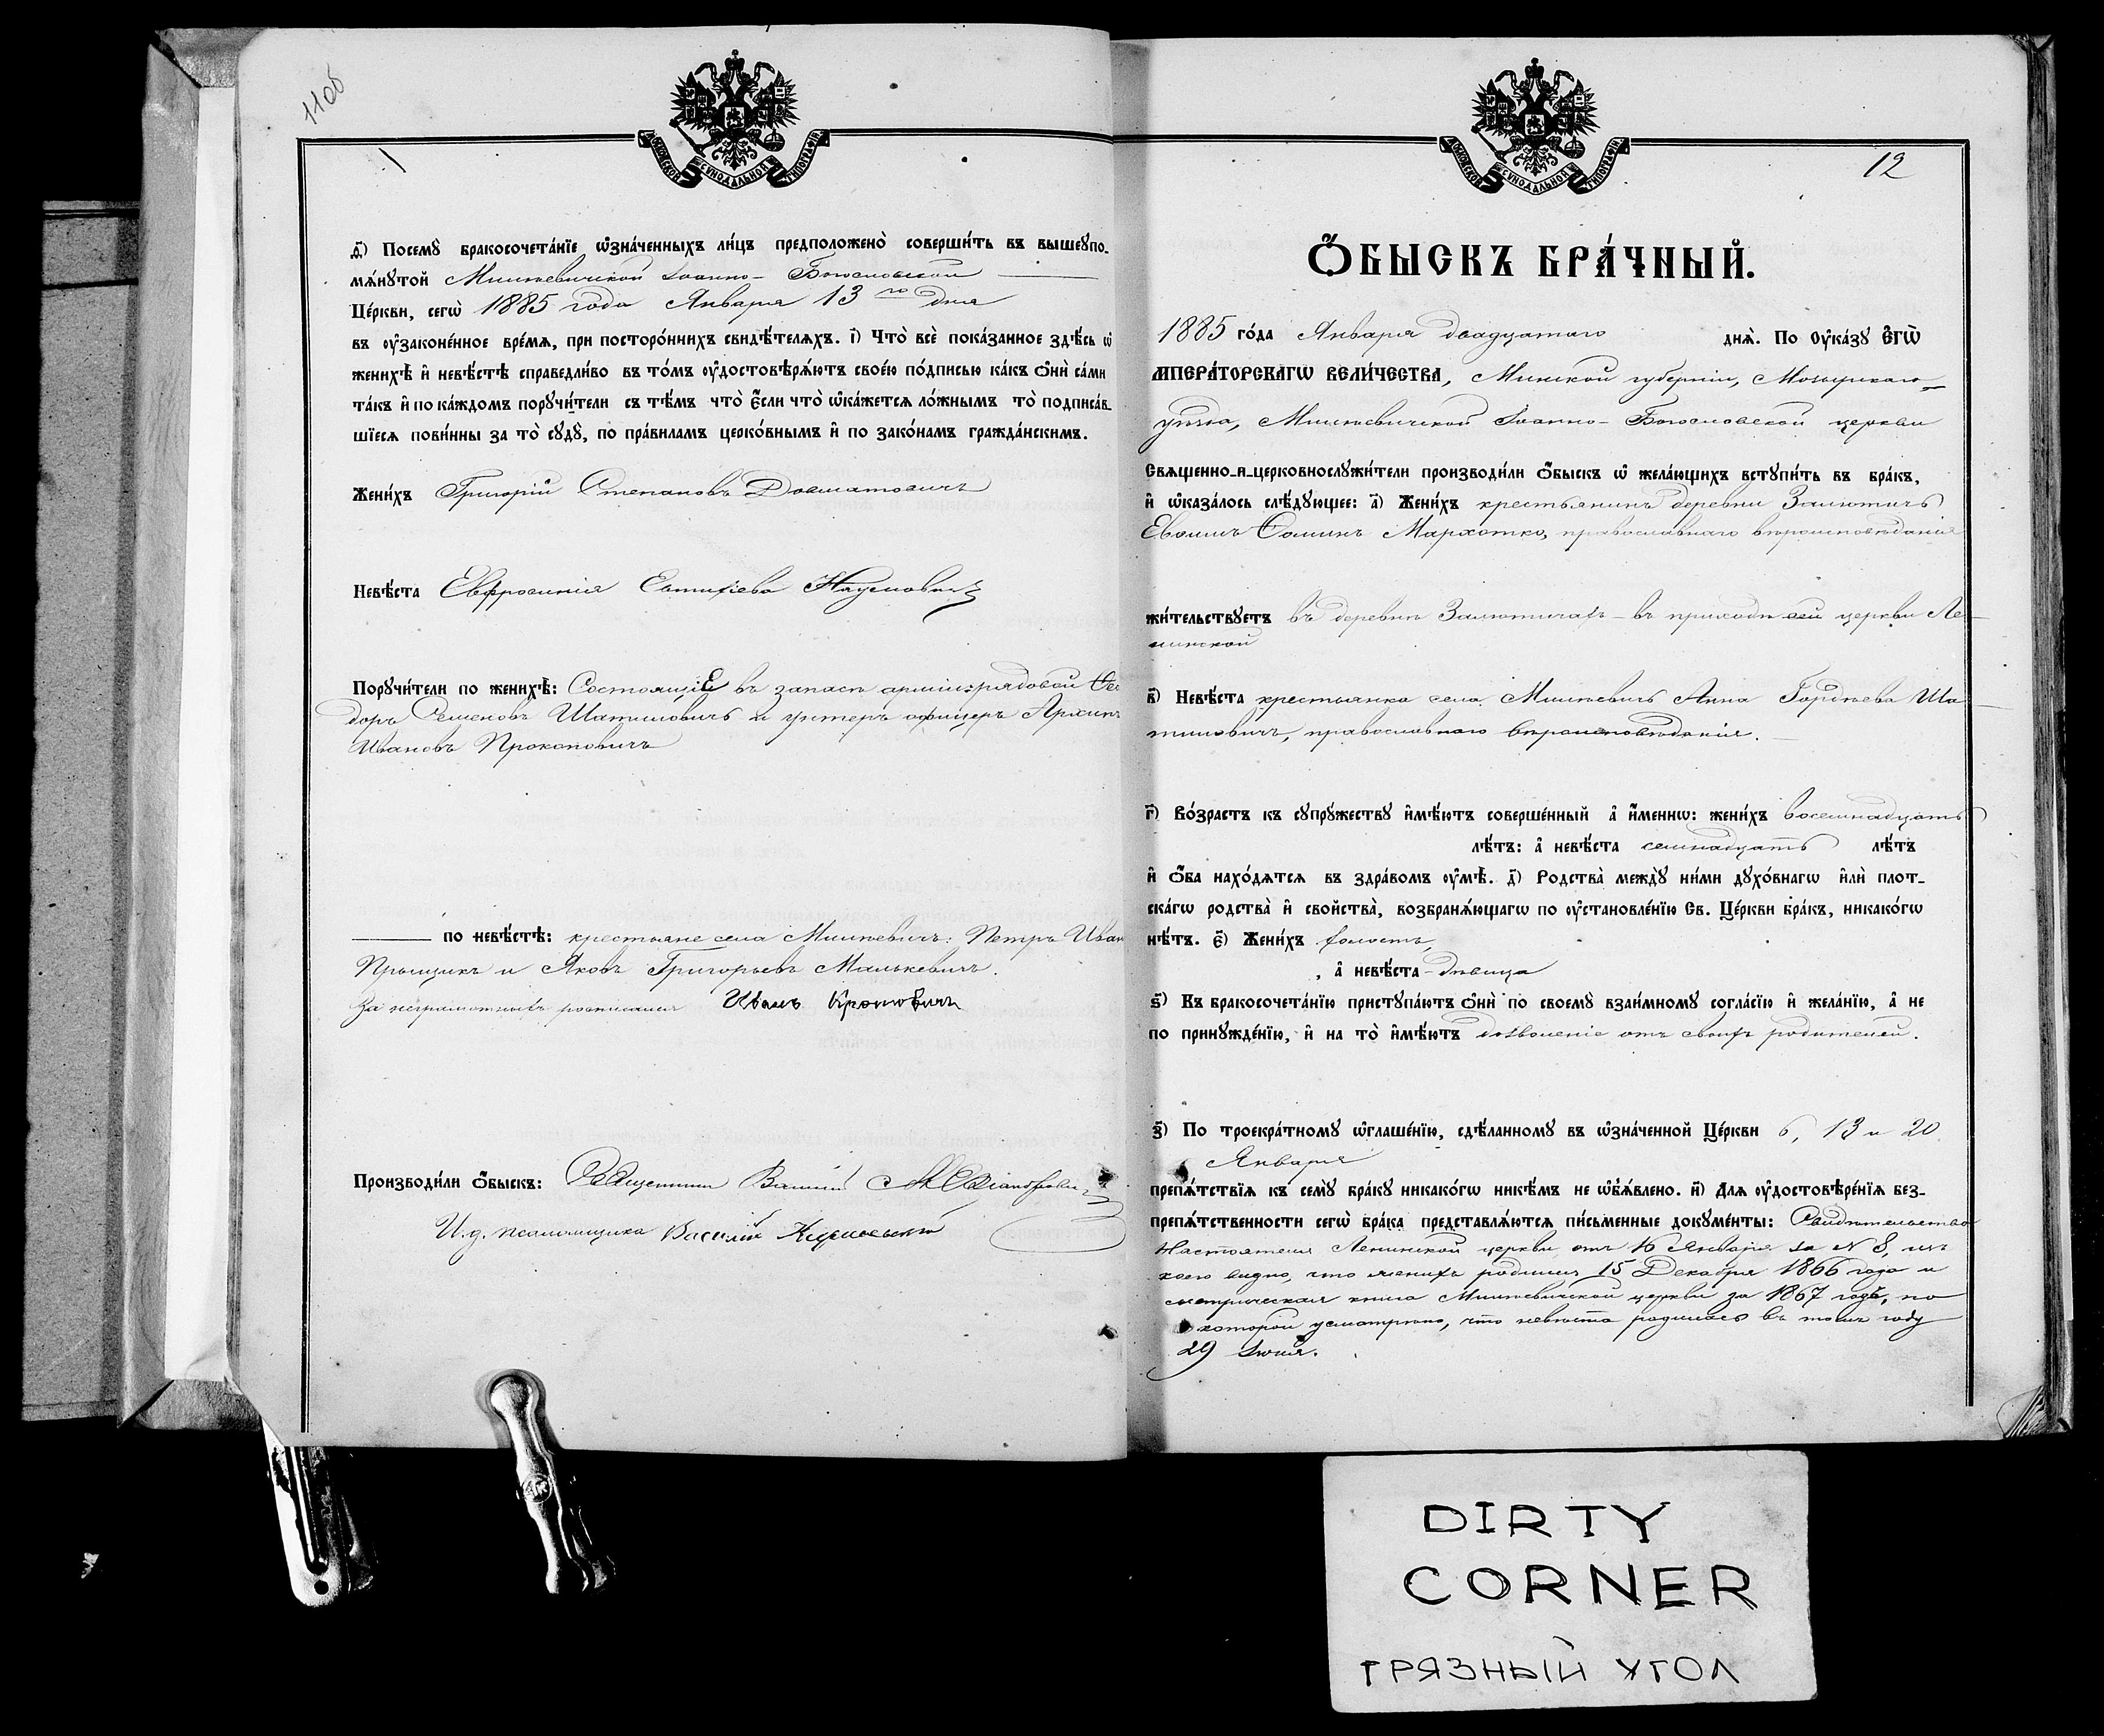 11об
МОСКОВСКОЙ СѴНОДАЛЬНОЙ ТИПОГРАФІИ
д҃) Посемꙋ̀ бракосочета́нїе ѡ҆зна́ченныхъ ли́цъ предположено̀ соверши́ть въ вышеꙋпо-
мѧ́нꙋтой Милевичской Іоанно- Богословской
Це́ркви, сегѡ̀ 1885 года Января 13 го дня
въ ᲂу҆зако́ненное вре́мѧ, при посторо́ннихъ свидѣ́телѧхъ. і҃) Что̀ всѐ пока́занное здѣ́сь ѡ҆
женихѣ̀ и҆ невѣ́стѣ справедли́во въ то́мъ ᲂу҆достовѣрѧ́ютъ свое́ю по́дписью ка́къ ѻ҆нѝ са́ми
та́къ и҆ по ка́ждомъ порꙋчи́тели съ тѣ́мъ что̀ є҆́сли что̀ ѡ҆ка́жетсѧ ло́жнымъ то̀ подписа́в-
шїесѧ пови́нны за то̀ сꙋдꙋ̀, по пра́виламъ церко́внымъ и҆ по зако́намъ гражда́нскимъ.
Жени́хъ Григорій Степановъ Довматовичъ
Невѣ́ста Евфросинія Евтихіева Наумовичъ
Порꙋчи́тели по женихѣ̀: Состоящіе въ запасѣ арміи: рядовой Ѳео
доръ Семеновъ Шатиловичъ и унтеръ офицеръ Архипъ
Ивановъ Прокоповичъ
по невѣ́стѣ: крестьяне села Милевичъ: Петръ Иван
Прыщикъ и Яковъ Григорьевъ Малькевичъ.
За неграмотныхъ росписался Иванъ
Производи́ли ѻ҆́быскъ: Священникъ Василій
И. д. псаломщика Василій
МОСКОВСКОЙ СѴНОДАЛЬНОЙ ТИПОГРАФІИ
12
Ѻ҆́БЫСКЪ БРА́ЧНЫЙ.
1885 го́да Января двадцатаго днѧ̀. По Оу҆ка́зꙋ Є҆ГѠ̀
ИМПЕРА́ТОРСКАГѠ ВЕЛИ́ЧЕСТВА, Минской губерніи, Мозырскаго
уѣзда, Милевичской Іоанно- Богословской церкви
Свѧщенно-и-церковнослꙋжи́тели производи́ли ѻ҆́быскъ ѡ҆ жела́ющихъ встꙋпи́ть въ бра́къ,
и҆ ѡ҆каза́лось слѣ́дꙋющее: а҃) Жени́хъ крестьянинъ деревни Залютичъ
Ѳоминъ Мархотко, православнаго вѣроисповѣданія
жи́тельствꙋетъ въ деревнѣ Залютичахъ - въ приходѣ сей церкви Ле-
нинской
в҃) Невѣ́ста крестьянка села Милевичъ Анна Гордѣева Ша
тиловичъ, православнаго вѣроисповѣданія.
г҃) Во́зрастъ къ сꙋпрꙋ́жествꙋ и҆мѣ́ютъ соверше́нный а҆ и҆́меннѡ: жени́хъ восемнадцать
лѣ́тъ: а҆ невѣ́ста семнадцать лѣ́тъ
и҆ ѻ҆́ба нахо́дѧтсѧ въ здра́вомъ ᲂу҆мѣ̀. д҃) Родства̀ междꙋ̀ ни́ми дꙋхо́внагѡ и҆лѝ плот-
ска́гѡ родства̀ и҆ свойства̀, возбранѧ́ющагѡ по ᲂу҆становле́нїю Св. Це́ркви бра́къ, никако́гѡ
нѣ́тъ. є҃) Жени́хъ холостъ,
, а҆ невѣ́ста - дѣвица
ѕ҃) Къ бракосочета́нїю пристꙋпа́ютъ ѻ҆нѝ по своемꙋ̀ взаи́мномꙋ согла́сїю и҆ жела́нїю, а҆ не
по принꙋжде́нїю, и҆ на то̀ и҆мѣ́ютъ дозволеніе отъ своихъ родителей.
з҃) По троекра́тномꙋ ѡ҆глаше́нїю, сдѣ́ланномꙋ въ ѡ҆зна́ченной Це́ркви 6, 13 и 20
Января
препѧ́тствїѧ къ семꙋ̀ бра́кꙋ никако́гѡ никѣ́мъ не ѡ҆б̾ѧ́влено. и҃) Длѧ ᲂу҆достовѣре́нїѧ без-
препѧ́тственности сегѡ̀ бра́ка представлѧ́ютсѧ пи́сьменные докꙋме́нты: Свидѣтельство
Настоятеля Ленинской церкви отъ 16 Января за № 8, изъ
коего видно, что женихъ родился 15 Декабря 1866 года и
метрическая книга Милевичской церкви за 1867 годъ, по
которой усмотрѣно, что невѣста родилась въ томъ году
29 Іюля.
DIRTY
CORNER
ГРЯЗНЫЙ УГОЛ